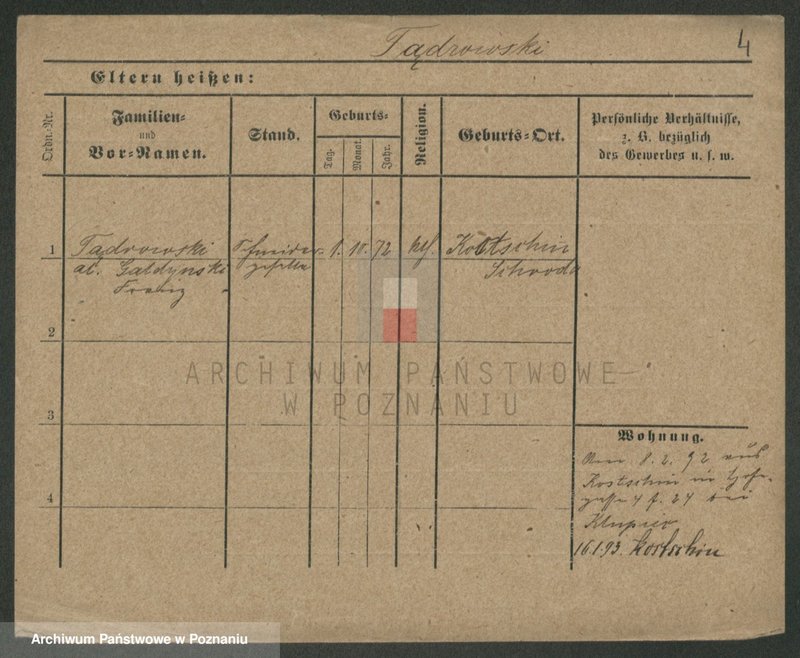 Tądrowski
4
Eltern heißen:
Ordn.-Nr.
Familien-
und
Vor-Namen.
Stand.
Geburts-
Tag.
Monat.
Jahr.
Religion.
Geburts-Ort.
Persönliche Verhältnisse,
z. B. bezüglich
des Gewerbes u. s. w.
1
Tądrowski
al. Galdynski
Franz
Schneider-
geselle
1. 10. 72
kth.
Kostschin
Schroda
2
3
4
ARCHIWUM PAŃSTWOWE
W POZNANIU
Wohnung.
8. 2. 92 aus
Kostschin in
4 f. 24 bei
16.1.93. Kostschin
Archiwum Państwowe w Poznaniu